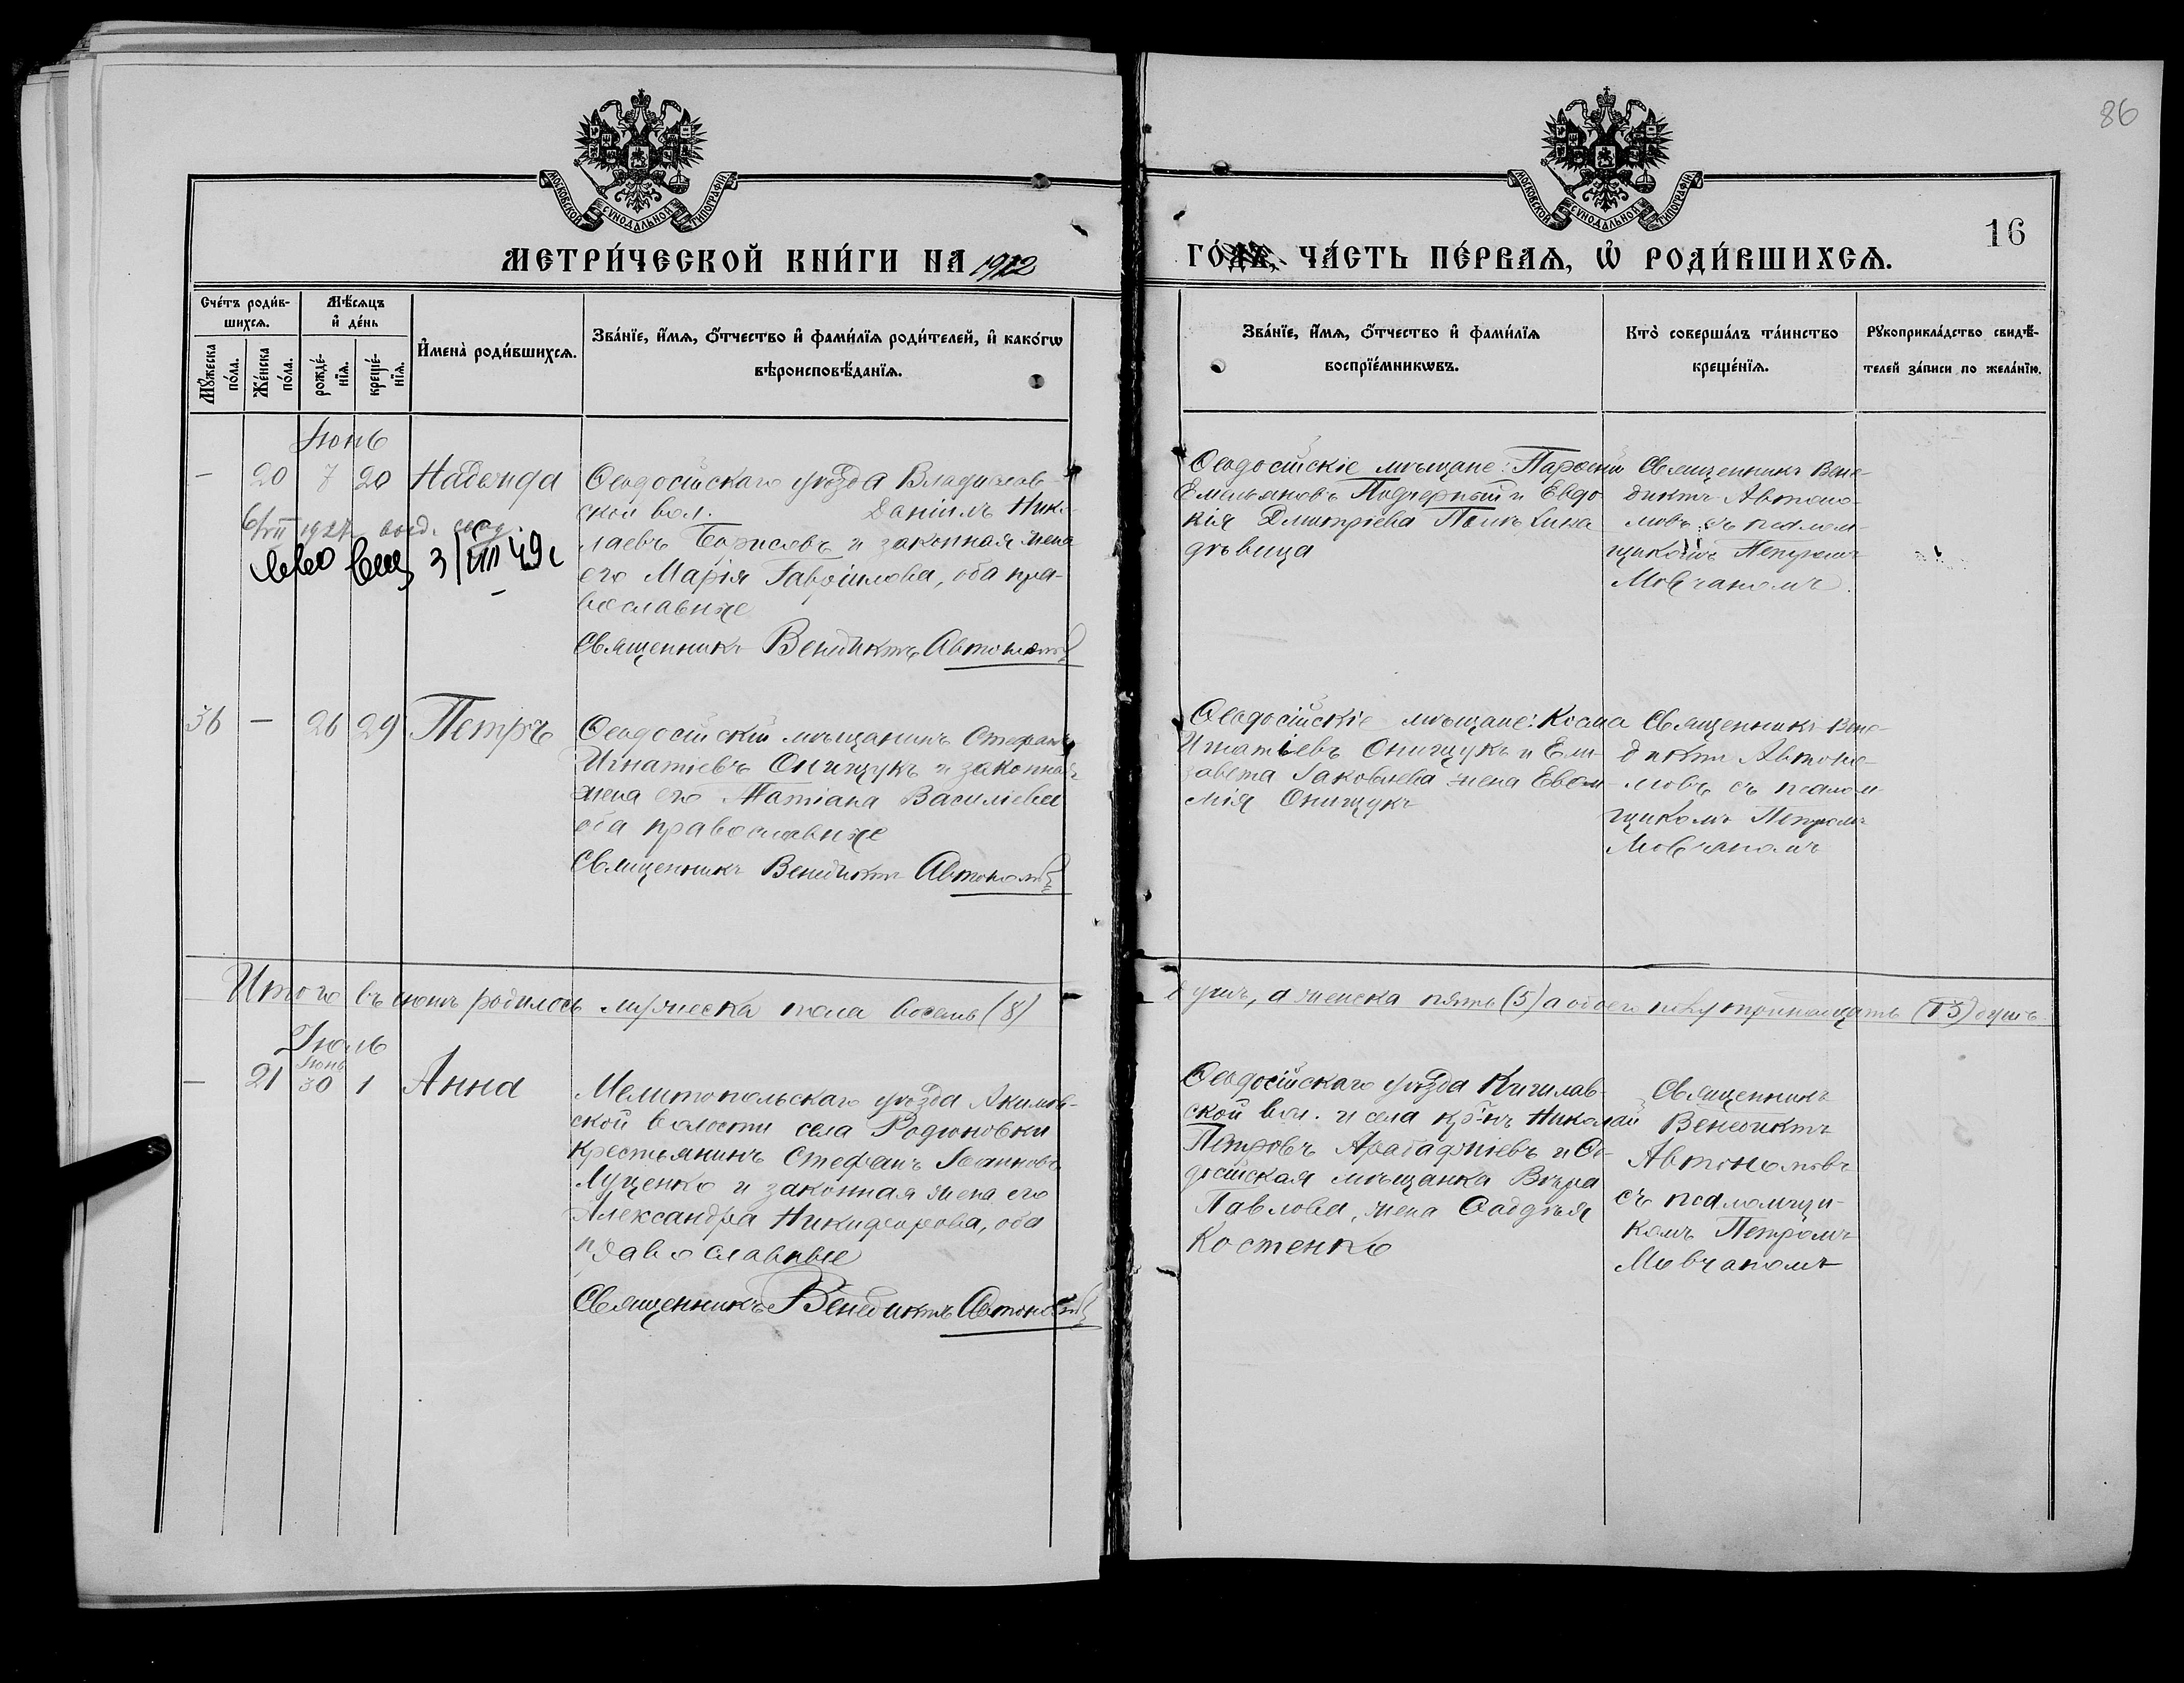 86
МОСКОВСКОЙ СУНОДАЛЬНОЙ ТИПОГРАФІИ
МОСКОВСКОЙ СУНОДАЛЬНОЙ ТИПОГРАФІИ
16
МЕТРИ́ЧЕСКОЙ КНИ́ГИ НА 1912
ГО́ДЪ, ЧА́СТЬ ПЕ́РВАѦ, Ѡ҆ РОДИ́ВШИХСѦ.
Сче́тъ роди́в-
шихсѧ.
Мѣ́сѧцъ
и҆ де́нь
Мꙋ́жеска по́ла.
Же́нска по́ла.
рожде́-нїѧ.
креще́-нїѧ.
И҆мена̀ роди́вшихсѧ.
Зва́нїе, и҆́мѧ, ѻ҆́тчество и҆ фами́лїѧ роди́телей, и҆ како́гѡ
вѣроисповѣ́данїѧ.
Зва́нїе, и҆́мѧ, ѻ҆́тчество и҆ фами́лїѧ
воспрїе́мникѡвъ.
Кто̀ соверша́лъ та́инство
креще́нїѧ.
Рꙋкоприкла́дство свидѣ́-
телей за́писи по жела́нїю.
Іюнь
— 20 7 20 Надежда
Ѳеодосійскаго уѣзда Владислав-
ской вол. Даніилъ Нико-
лаевъ Борисовъ и законная жена
его Марія Гавріилова, оба пра-
вославные
Священникъ Венедиктъ Автономовъ
6/VII 1927
3/VIII 49 г
Ѳеодосійскіе мѣщане:
Емельяновъ Подчерный и Евдо-
кія Дмитріева
дѣвица
Священникъ Вене-
диктъ Автоно-
мовъ съ псалом-
щикомъ Петромъ
Мовчаномъ.
36 — 26 29 Петръ
Ѳеодосійскій мѣщанинъ Стефанъ
Игнатіевъ Онищукъ и законная
жена его Татіана Василіева
оба православные
Священникъ Венедиктъ Автономовъ
Ѳеодосійскіе мѣщане: Косма
Игнатіевъ Онищукъ и Ели-
завета Іаковлева жена Евѳи-
мія Онищукъ
Священникъ Вене-
диктъ Автоно-
мовъ съ псалом-
щикомъ Петромъ
Мовчаномъ
Итого въ іюнѣ родилось мужеска пола восемь (8)
душъ, а женска пять (5) а обоего полу тринадцать (13) душъ.
Іюль
Іюнь
— 21 30 1 Анна
Мелитопольскаго уѣзда Акимов-
ской волости села Родіоновки
крестьянинъ Стефанъ Іоанновъ
Луценко и законная жена его
Александра Никифорова, оба
православные
Священникъ Венедиктъ Автономовъ
Ѳеодосійскаго уѣзда
ской вол. и села кр-нъ Николай
Петровъ и Ѳео-
досійская мѣщанка Вѣра
Павлова, жена Ѳаддея
Костенко
Священникъ
Венедиктъ
Автономовъ
съ псаломщи-
комъ Петромъ
Мовчаномъ